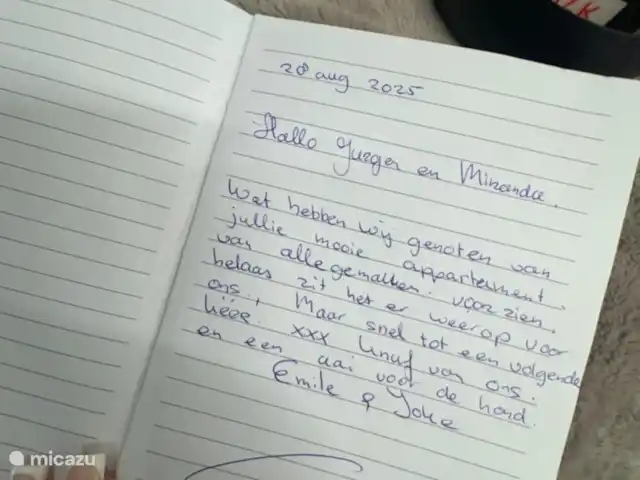 28 aug 2025
Hallo Jurgen en Miranda.
Wat hebben wij genoten van
jullie mooie appartement.
van alle gemakken. voorzien.
helaas zit het er weer op voor
ons., Maar snel tot een volgende
kéée. xxx Knuf van ons.
en een aai voor de hond.
Emile & Joke
micazu